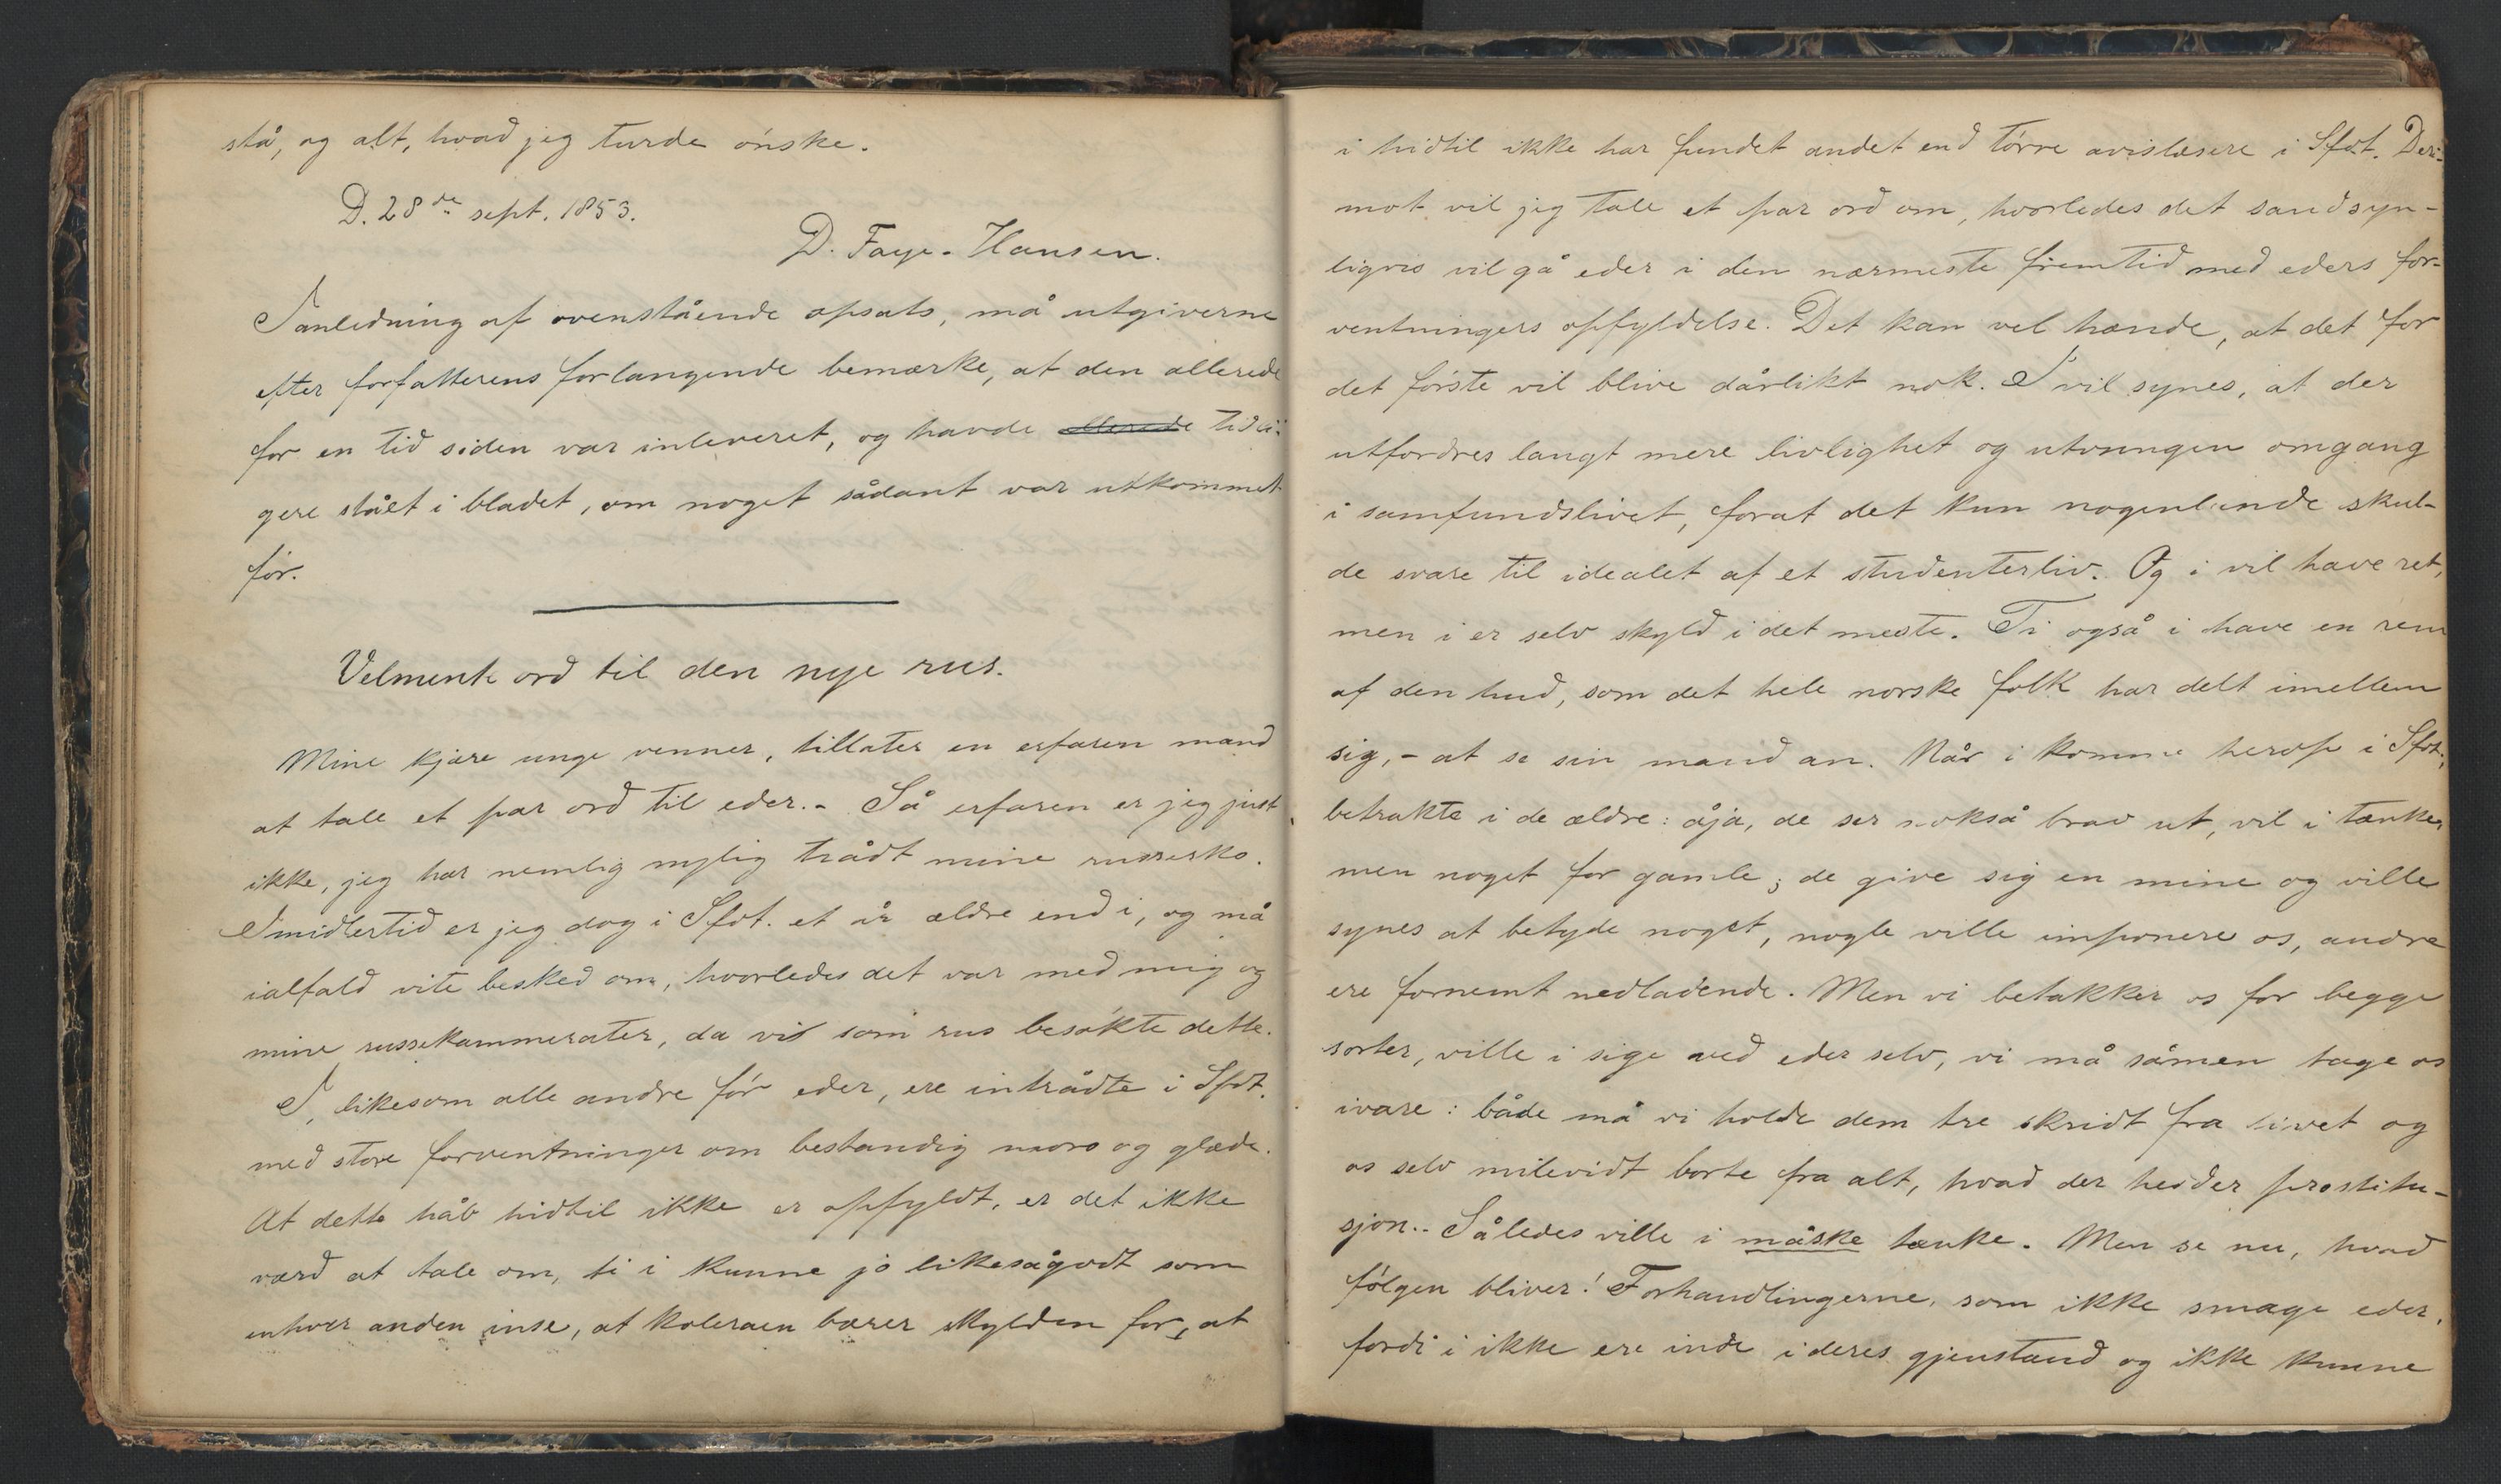 stå, og alt, hvad jeg turde ønske.
D. 28de sept. 1853.
D. Faye-Hansen.
I anledning af ovenstående opsats, må utgiverne
efter forfatterens forlangende bemærke, at den allerede
for en tid siden var inleveret, og havde allerede tidli-
gere stået i bladet, om noget sådant var utkommet
før.
Velment ord til den nye rus.
Mine kjære unge venner, tillater en erfaren mand
at tale et par ord til eder. - Så erfaren er jeg just
ikke, jeg har nemlig nylig trådt mine russesko.
Imidlertid er jeg dog i Sfdt. et år ældre end i, og må
ialfald vite besked om, hvorledes det var med mig og
mine russekammerater, da vi som rus besøkte dette.
I, likesom alle andre før eder, ere intrådte i Sfdt.
med store forventninger om bestandig moro og glæde.
At dette håb hidtil ikke er opfyldt, er det ikke
værd at tale om, ti i kunne jo likesågodt som
enhver anden inse, at koleraen bærer skylden for, at
i hidtil ikke har fundet andet end tørre avislæsere i Sfdt. Deri-
mot vil jeg tale et par ord om, hvorledes det sandsyn-
ligvis vil gå eder i den nærmeste fremtid med eders for-
ventningers opfyldelse. Det kan vel hænde, at det for
det første vil blive dårlikt nok. I vil synes, at der
utfordres langt mere livlighet og utvungen omgang
i samfundslivet, forat det kun nogenlunde skul-
de svare til idealet af et studenterliv. Og i vil have ret,
men i er selv skyld i det meste. Ti også i have en rem
af den hud, som det hele norske folk har delt imellem
sig, - at se sin mand an. Når i komme herop i Sfdt.,
betrakte i de ældre: åja, de ser nokså brav ut, vil i tænke,
men noget for gamle; de give sig en mine og ville
synes at betyde noget, nogle ville imponere os, andre
ere fornemt nedladende. Men vi betakker os for begge
sorter, ville i sige ved eder selv, vi må såmen tage os
ivare: både må vi holde dem tre skridt fra livet og
os selv milevidt borte fra alt, hvad der hedder prostitu-
sjon.. Således ville i måske tænke. Men se nu, hvad
følgen bliver! Forhandlingerne, som ikke smage eder,
fordi i ikke ere inde i deres gjenstand og ikke kunne